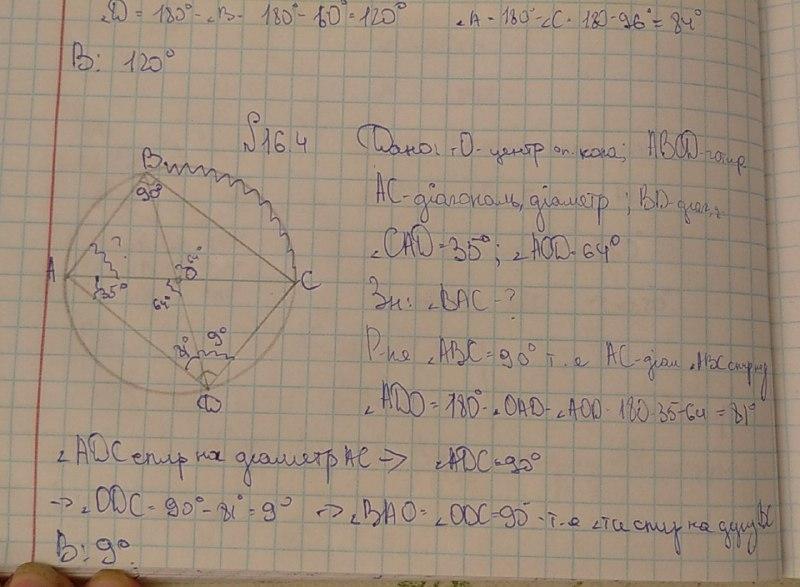 ∠D = 180° - ∠B = 180° - 60° = 120° ∠A = 180° - ∠C = 180 - 96° = 84°
В: 120°
§16.4
Дано: О - центр оп. кола; ABCD - чотир.
AC - діагональ, діаметр; BD - діаг.
∠CAD = 35°; ∠AOD = 64°
Зн: ∠BAC - ?
Р-ня ∠ABC = 90° т.я AC - діам
∠ADO = 180° - ∠OAD - ∠AOD = 180 - 35 - 64 = 81°
∠ADC спир на діаметр AC → ∠ADC = 90°
→ ∠ODC = 90° - 81° = 9° → ∠BAO = ∠ODC = 9° - т.я ці спир на дугу BC
В: 9°
B
90°
A
?
35°
O
64°
64°
C
81°
9°
D